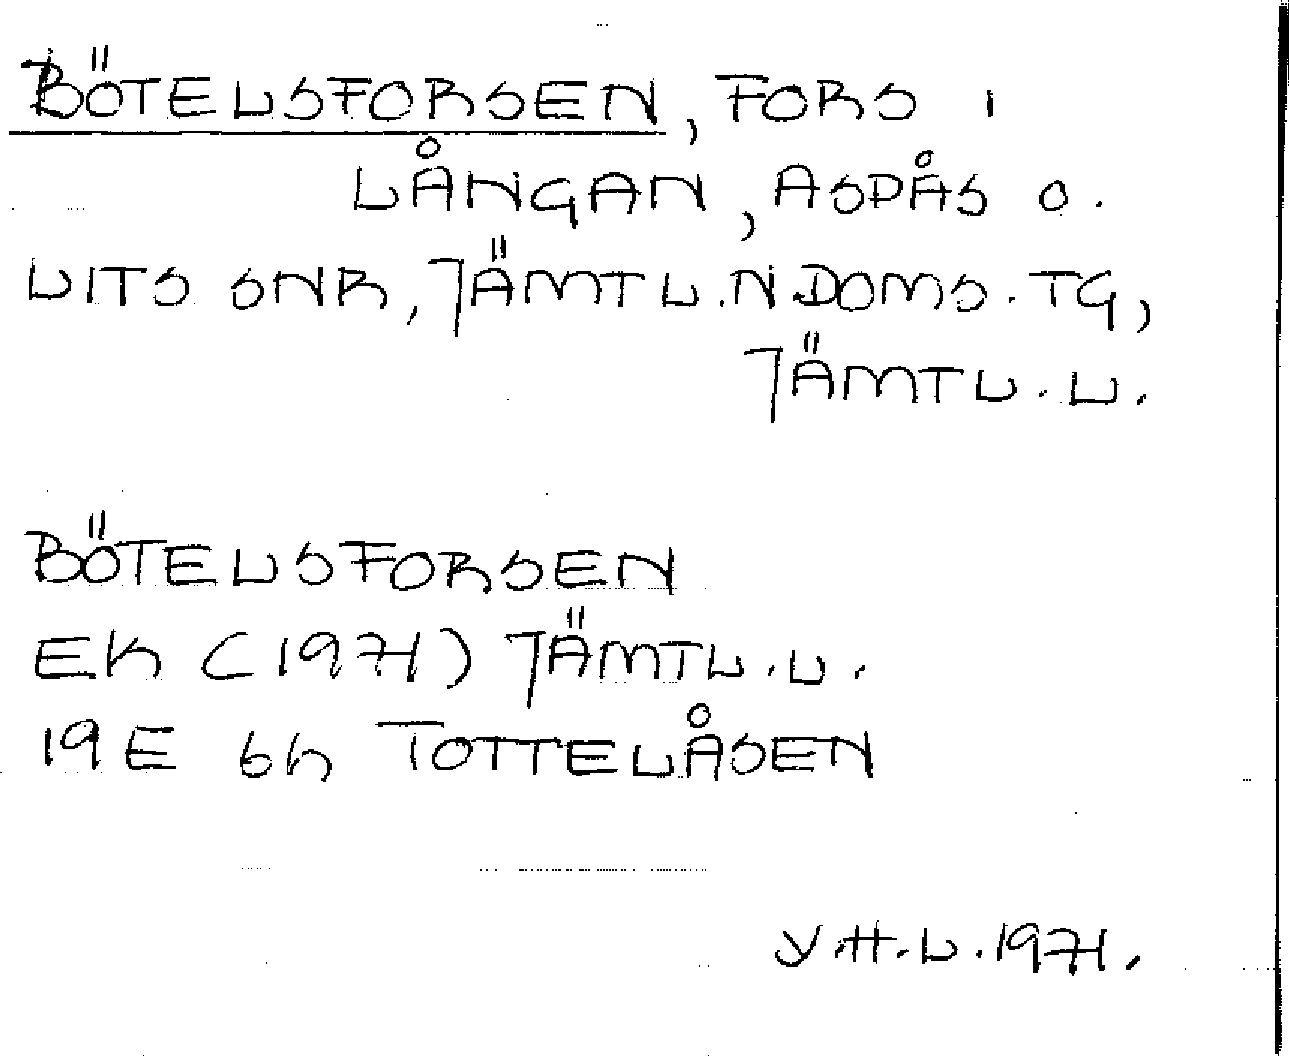 BÖTELSFORSEN, FORS I
LÅNGAN, ASPÅS O.
LITS SNR, JÄMTL. N DOMS. TG,
JÄMTL. L.
BÖTELSFORSEN
EK (1971) JÄMTL. L.
19 E 6h TOTTELÅSEN
Y H. L. 1971.